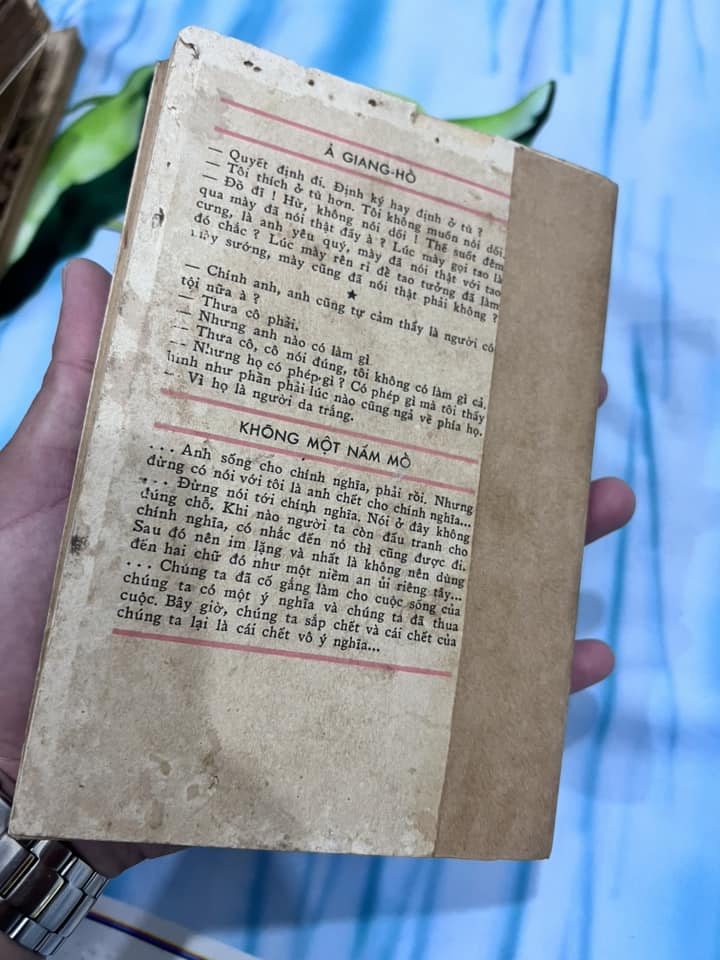 Ả GIANG-HỒ
— Quyết định đi. Định ký hay định ở tù ?
— Tôi thích ở tù hơn. Tôi không muốn nói dối.
— Đồ đĩ ! Hừ, không nói dối ! Thế suốt đêm
qua mày đã nói thật đấy à ? Lúc mày gọi tao là
cưng, là anh yêu quý, mày đã nói thật với tao
đó chắc ? Lúc mày rên rỉ để tao tưởng đã làm
mày sướng, mày cũng đã nói thật phải không ?
★
— Chính anh, anh cũng tự cảm thấy là người có
tội nữa à ?
— Thưa cô phải.
— Nhưng anh nào có làm gì
— Thưa cô, cô nói đúng, tôi không có làm gì cả.
— Nhưng họ có phép gì ? Có phép gì mà tôi thấy
hình như phần phải lúc nào cũng ngả về phía họ.
— Vì họ là người da trắng.
KHÔNG MỘT NẤM MỒ
. . . Anh sống cho chính nghĩa, phải rồi. Nhưng
đừng có nói với tôi là anh chết cho chính nghĩa...
. . . Đừng nói tới chính nghĩa. Nói ở đây không
đúng chỗ. Khi nào người ta còn đấu tranh cho
chính nghĩa, có nhắc đến nó thì cũng được đi.
Sau đó nên im lặng và nhất là không nên dùng
đến hai chữ đó như một niềm an ủi riêng tây...
. . . Chúng ta đã cố gắng làm cho cuộc sống của
chúng ta có một ý nghĩa và chúng ta đã thua
cuộc. Bây giờ, chúng ta sắp chết và cái chết của
chúng ta lại là cái chết vô ý nghĩa...